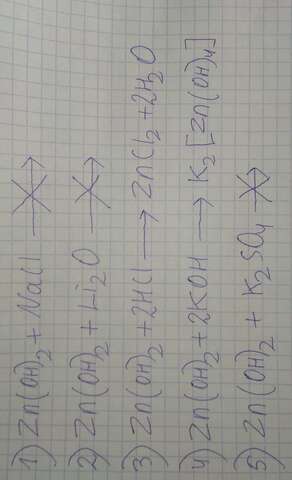 1) Zn(OH)₂ + NaCl ⟶̸
2) Zn(OH)₂ + Li₂O ⟶̸
3) Zn(OH)₂ + 2HCl ⟶ ZnCl₂ + 2H₂O
4) Zn(OH)₂ + 2KOH ⟶ K₂[Zn(OH)₄]
5) Zn(OH)₂ + K₂SO₄ ⟶̸